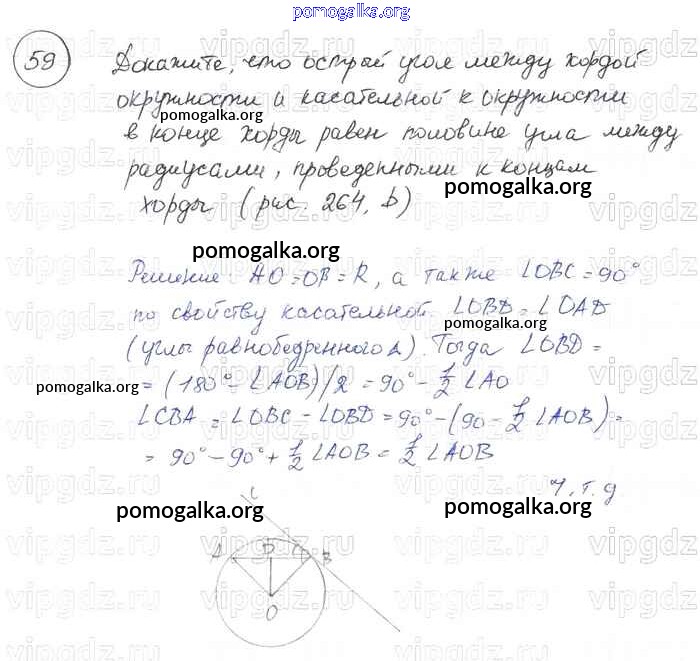 pomogalka.org
59
Докажите, что острый угол между хордой
окружности и касательной к окружности
pomogalka.org
в конце хорды равен половине угла между
радиусами, проведенными к концам
pomogalka.org
хорды (рис. 264, b)
pomogalka.org
Решение: AO=OB=R, а также ∠OBC=90°
по свойству касательной. ∠OBD=∠OAD
pomogalka.org
(углы равнобедренного Δ). Тогда ∠OBD =
pomogalka.org
= (180°-∠AOB)/2 = 90° - 1/2 ∠AO
∠CBA = ∠OBC - ∠OBD = 90° - (90 - 1/2 ∠AOB) =
= 90° - 90° + 1/2 ∠AOB = 1/2 ∠AOB
ч.т.д.
C
pomogalka.org
pomogalka.org
A D B
O